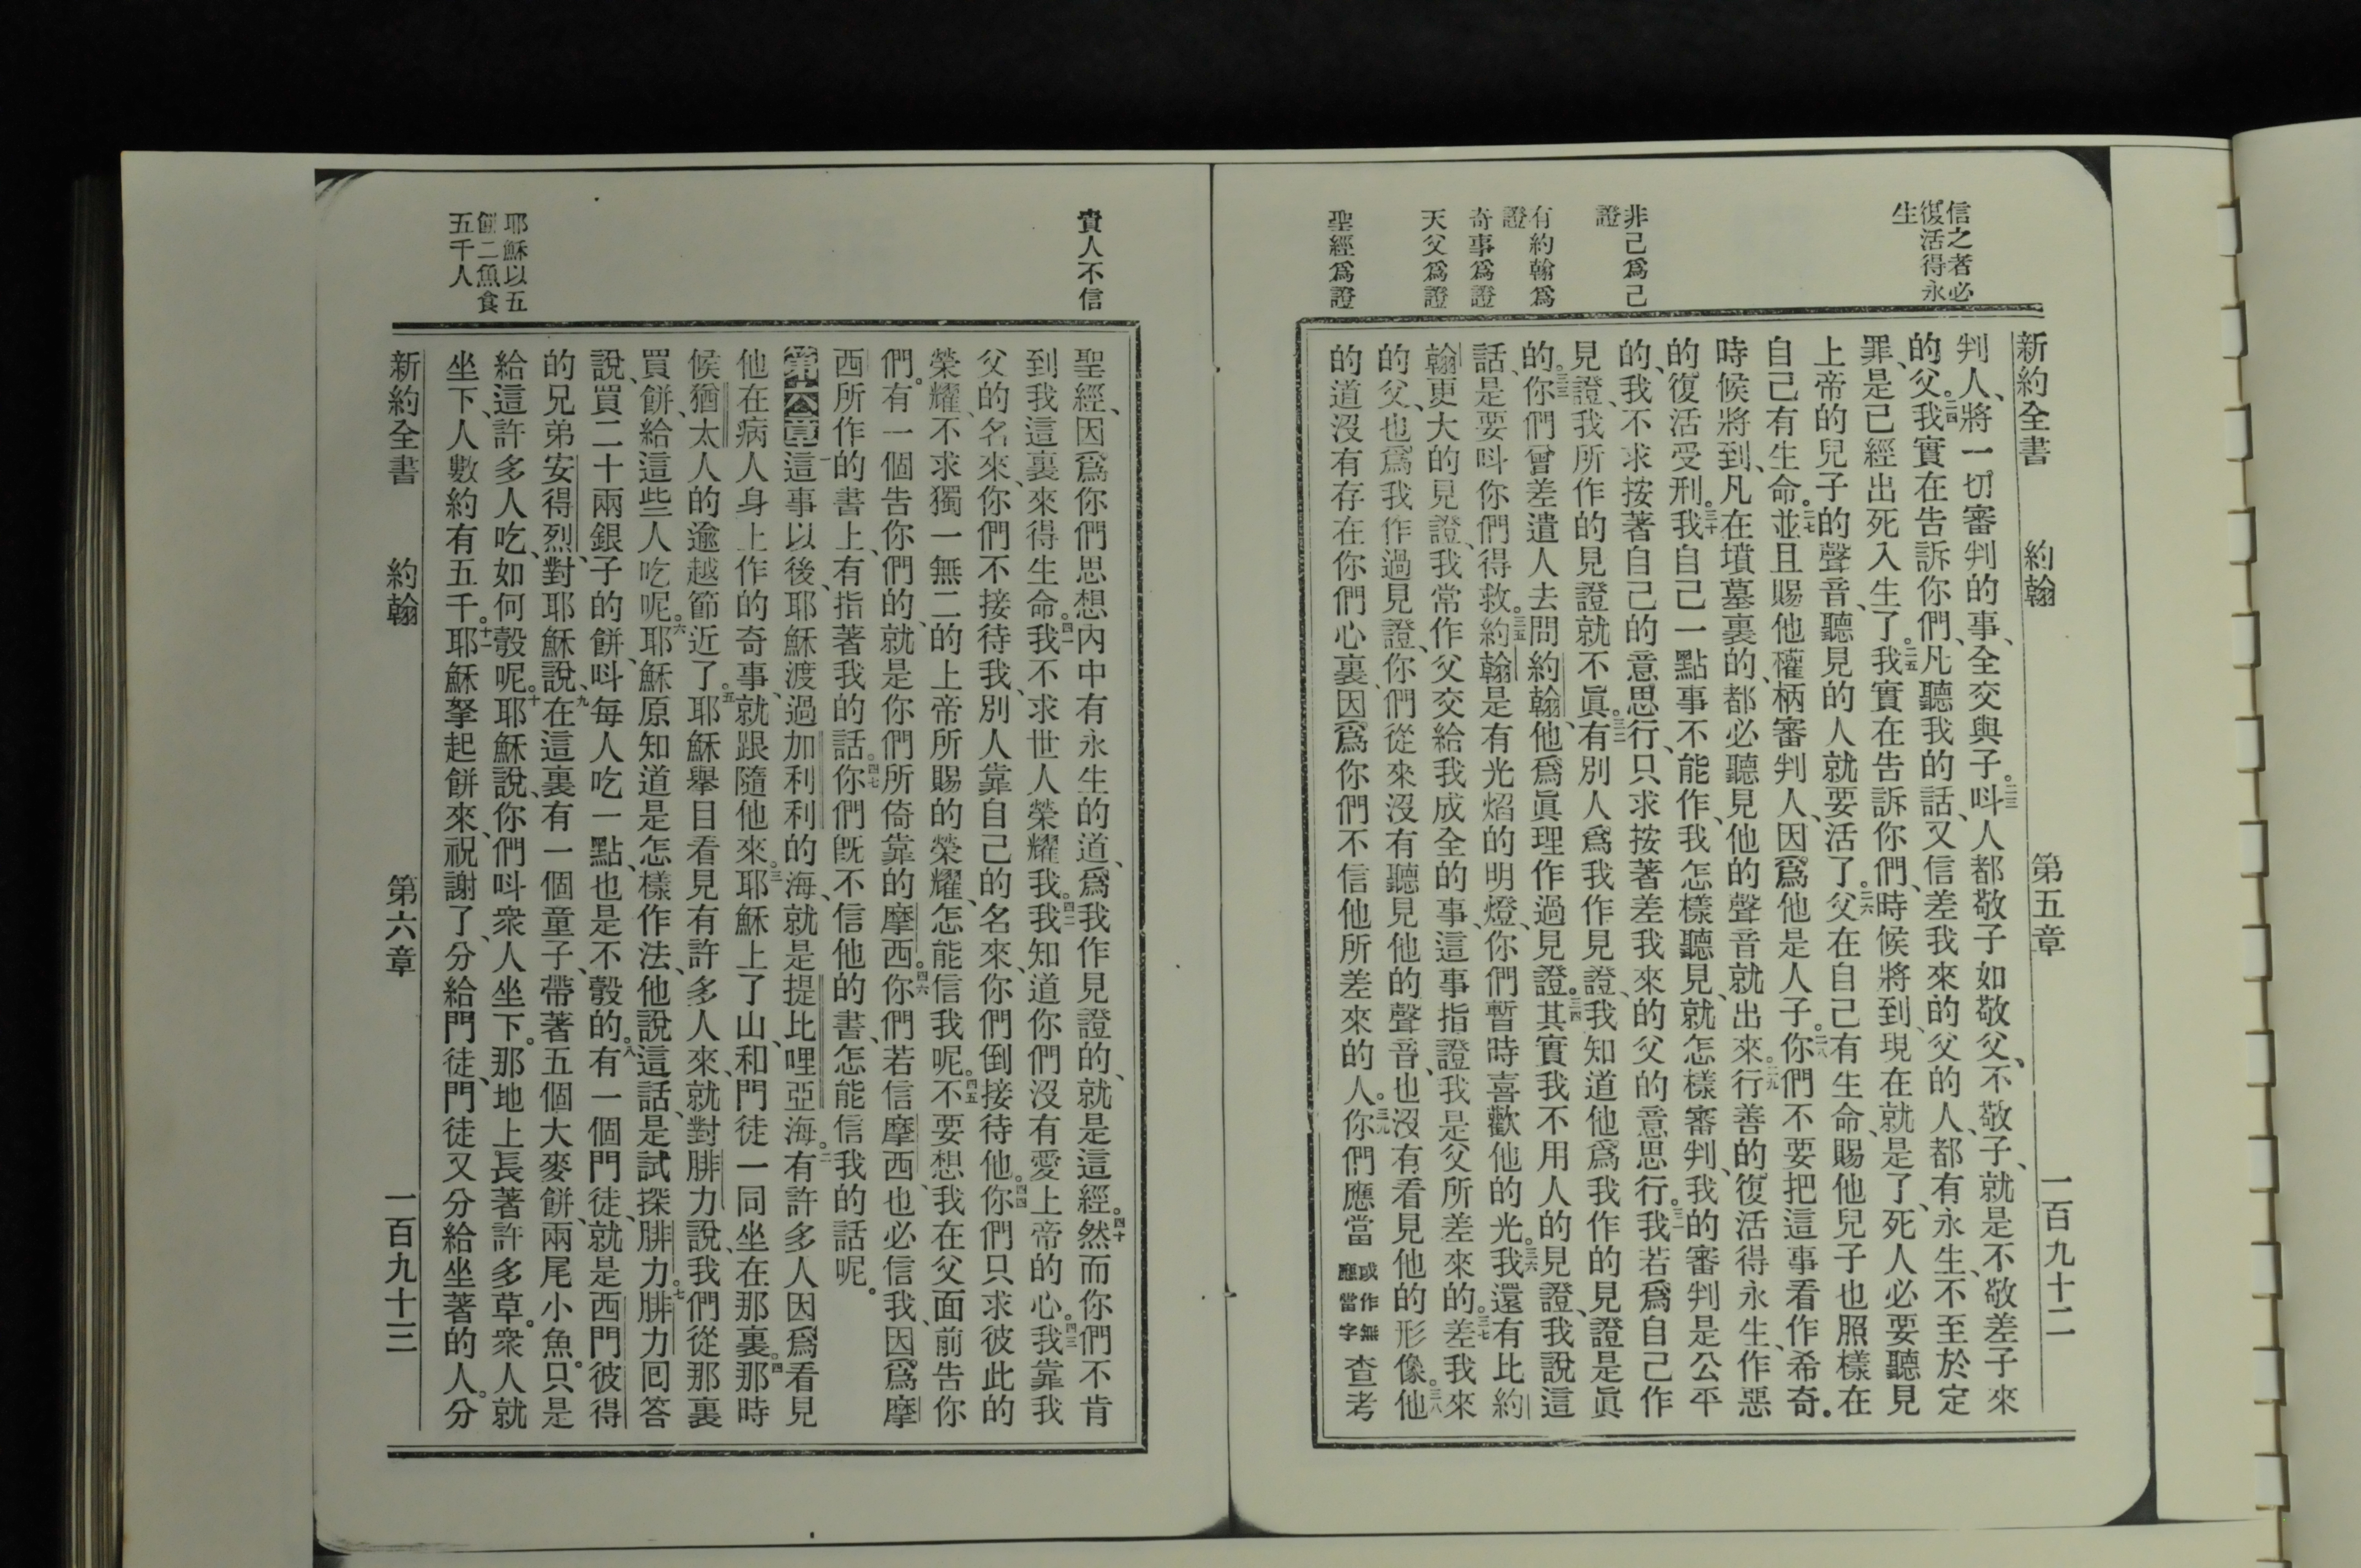 新約全書　約翰　第五章　一百九十二
信之者必
復活得永
生
非己爲己
證
有約翰爲
證
奇事爲證
天父爲證
聖經爲證
判人、將一切審判的事、全交與子。二三呌人都敬子如敬父、不敬子、就是不敬差子來
的父。二四我實在告訴你們、凡聽我的話、又信差我來的父的人、都有永生、不至於定
罪、是已經出死入生了。二五我實在告訴你們、時候將到、現在就是了、死人必要聽見
上帝的兒子的聲音、聽見的人就要活了。二六父在自己有生命、賜他兒子也照樣在
自己有生命。二七並且賜他權柄審判人、因爲他是人子。二八你們不要把這事看作希奇。
時候將到、凡在墳墓裏的、都必聽見他的聲音就出來。二九行善的復活得永生、作惡
的復活受刑。三十我自己一點事不能作、我怎樣聽見、就怎樣審判、我的審判是公平
的、我不求按著自己的意思行、只求按著差我來的父的意思行。三一我若爲自己作
見證、我所作的見證就不眞。三二有別人爲我作見證、我知道他爲我作的見證是眞
的。三三你們曾差遣人去問約翰、他爲眞理作過見證。三四其實我不用人的見證、我說這
話、是要呌你們得救。三五約翰是有光焰的明燈、你們暫時喜歡他的光。三六我還有比約
翰更大的見證、我常作父交給我成全的事、這事指證我是父所差來的。三七差我來
的父、也爲我作過見證、你們從來沒有聽見他的聲音、也沒有看見他的形像。三八他
的道沒有存在你們心裏、因爲你們不信他所差來的人。三九你們應當或作無應當字查考
貴人不信
耶穌以五
餅二魚食
五千人
聖經、因爲你們思想內中有永生的道、爲我作見證的、就是這經。四十然而你們不肯
到我這裏來得生命。四一我不求世人榮耀我。四二我知道你們沒有愛上帝的心。四三我靠我
父的名來、你們不接待我、別人靠自己的名來、你們倒接待他。四四你們只求彼此的
榮耀、不求獨一無二的上帝所賜的榮耀、怎能信我呢。四五不要想我在父面前告你
們。有一個告你們的、就是你們所倚靠的摩西。四六你們若信摩西、也必信我、因爲摩
西所作的書上、有指著我的話。四七你們旣不信他的書、怎能信我的話呢。
第六章一這事以後、耶穌渡過加利利的海、就是提比哩亞海。二有許多人因爲看見
他在病人身上作的奇事、就跟隨他來。三耶穌上了山、和門徒一同坐在那裏。四那時
候猶太人的逾越節近了。五耶穌舉目看見有許多人來、就對腓力說、我們從那裏
買餅、給這些人吃呢。六耶穌原知道是怎樣作法、他說這話、是試探腓力。七腓力回答
說、買二十兩銀子的餅、呌每人吃一點、也是不彀的。八有一個門徒、就是西門彼得
的兄弟安得烈、對耶穌說、九在這裏有一個童子、帶著五個大麥餅、兩尾小魚。只是
給這許多人吃、如何彀呢。十耶穌說、你們呌衆人坐下。那地上長著許多草。衆人就
坐下、人數約有五千。十一耶穌拏起餅來、祝謝了、分給門徒、門徒又分給坐著的人。分
新約全書　約翰　第六章　一百九十三